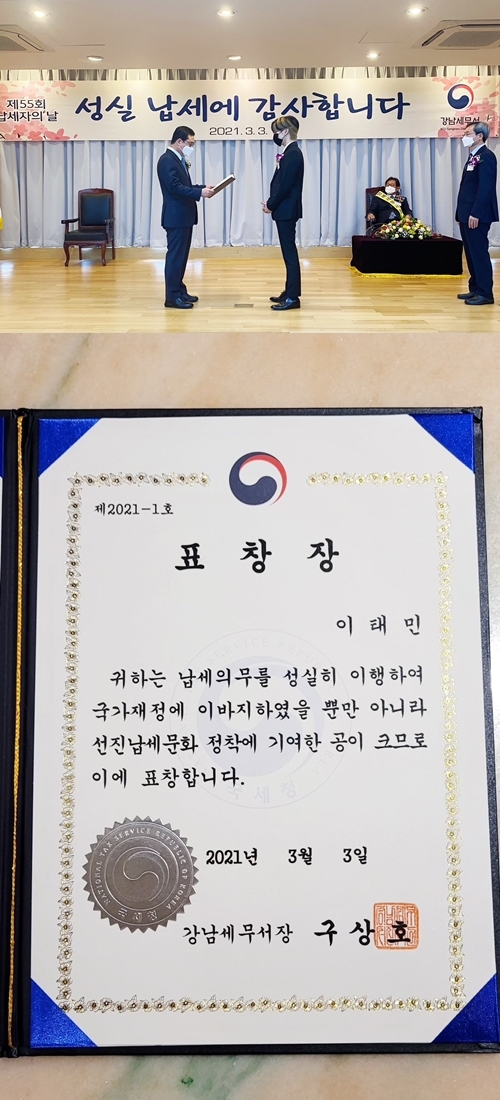 제55회
납세자의 날
성실 납세에 감사합니다
2021. 3. 3.
강남세무서
제2021-1호
표 창 장
이 태 민
귀하는 납세의무를 성실히 이행하여
국가재정에 이바지하였을 뿐만 아니라
선진납세문화 정착에 기여한 공이 크므로
이에 표창합니다.
국세청
NATIONAL TAX SERVICE REPUBLIC OF KOREA
국세청
2021년 3월 3일
강남세무서장 구상호